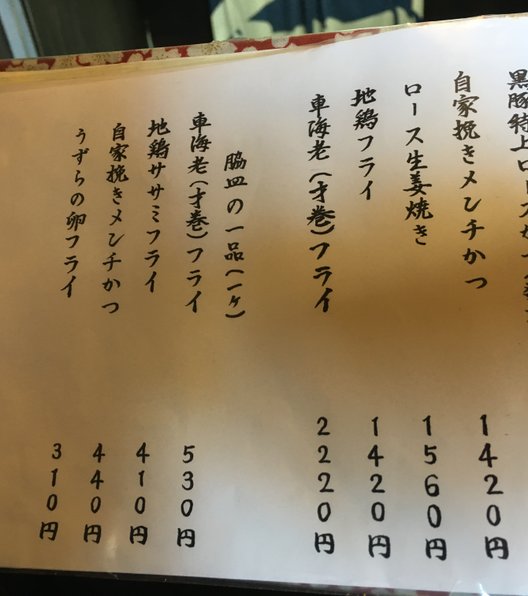 自家挽きメンチかつ 1420円
ロース生姜焼き 1560円
地鶏フライ 1420円
車海老(才巻)フライ 2220円
脇皿の一品(一ヶ)
車海老(才巻)フライ 530円
地鶏ササミフライ 410円
自家挽きメンチかつ 440円
うずらの卵フライ 310円